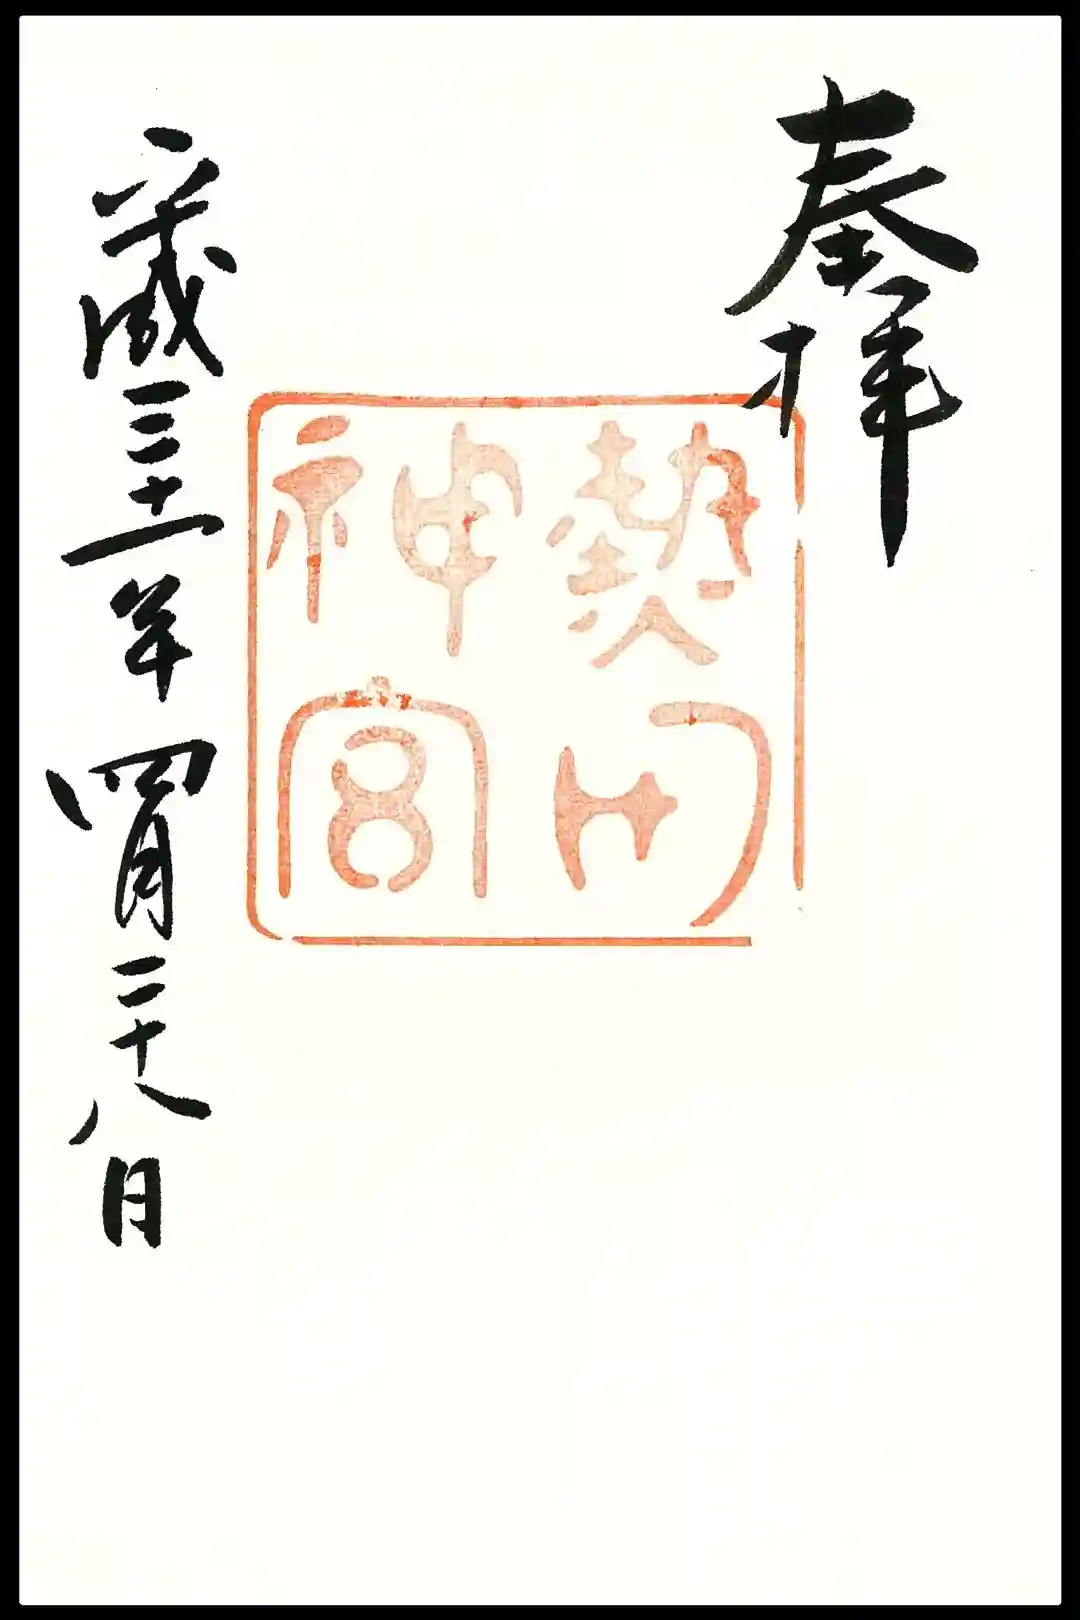 奉拝
熱田
神宮
平成三十一年四月二十八日